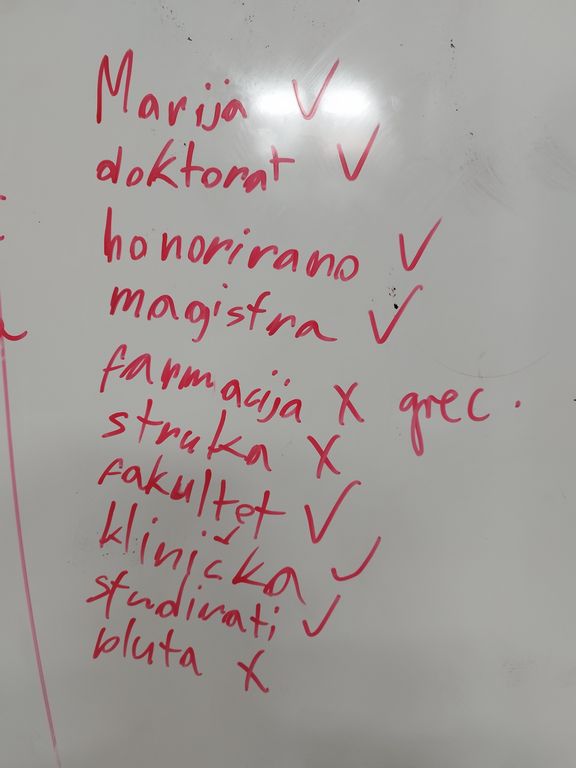 Marija ✓
doktorat ✓
honorirano ✓
magistra ✓
farmacija X grec.
struka X
fakultet ✓
klinička ✓
studirati ✓
pluta X